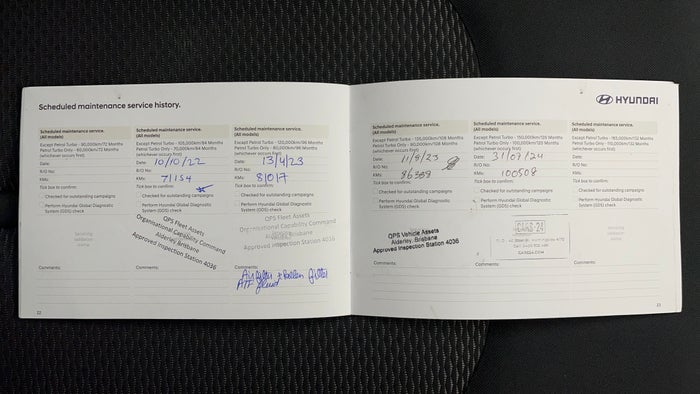 Scheduled maintenance service history.
Scheduled maintenance service.
(All models)
Except Petrol Turbo - 90,000km/72 Months
Petrol Turbo Only - 60,000km/72 Months
(whichever occurs first)
Date:
R/O No:
KMs:
Tick box to confirm:
Checked for outstanding campaigns
Perform Hyundai Global Diagnostic
System (GDS) check
Servicing
validation
stamp
Comments:
22
Scheduled maintenance service.
(All models)
Except Petrol Turbo - 105,000km/84 Months
Petrol Turbo Only - 70,000km/84 Months
(whichever occurs first)
Date: 10/10/22
R/O No:
KMs: 71154
Tick box to confirm:
Checked for outstanding campaigns
Perform Hyundai Global Diagnostic
System (GDS) check
QPS Fleet Assets
Organisational Capability Command
Alderley Brisbane
Approved Inspection Station 4036
Comments:
Scheduled maintenance service.
(All models)
Except Petrol Turbo - 120,000km/96 Months
Petrol Turbo Only - 80,000km/96 Months
(whichever occurs first)
Date: 13/4/23
R/O No:
KMs: 81017
Tick box to confirm:
Checked for outstanding campaigns
Perform Hyundai Global Diagnostic
System (GDS) check
QPS Fleet Assets
Organisational Capability Command
Alderley Brisbane
Approved Inspection Station 4036
Comments:
Air filter + Pollen filter
ATF fluid
HYUNDAI
Scheduled maintenance service.
(All models)
Except Petrol Turbo - 135,000km/108 Months
Petrol Turbo Only - 90,000km/108 Months
(whichever occurs first)
Date: 11/8/23
R/O No:
KMs: 86389
Tick box to confirm:
Checked for outstanding campaigns
Perform Hyundai Global Diagnostic
System (GDS) check
QPS Vehicle Assets
Alderley, Brisbane
Approved Inspection Station 4036
Comments:
Scheduled maintenance service.
(All models)
Except Petrol Turbo - 150,000km/120 Months
Petrol Turbo Only - 100,000km/120 Months
(whichever occurs first)
Date: 31/07/24
R/O No:
KMs: 100508
Tick box to confirm:
Checked for outstanding campaigns
Perform Hyundai Global Diagnostic
System (GDS) check
Comments:
Scheduled maintenance service.
(All models)
Except Petrol Turbo - 165,000km/132 Months
Petrol Turbo Only - 110,000km/132 Months
(whichever occurs first)
Date:
R/O No:
KMs:
Tick box to confirm:
Checked for outstanding campaigns
Perform Hyundai Global Diagnostic
System (GDS) check
Servicing
validation
stamp
Comments:
23